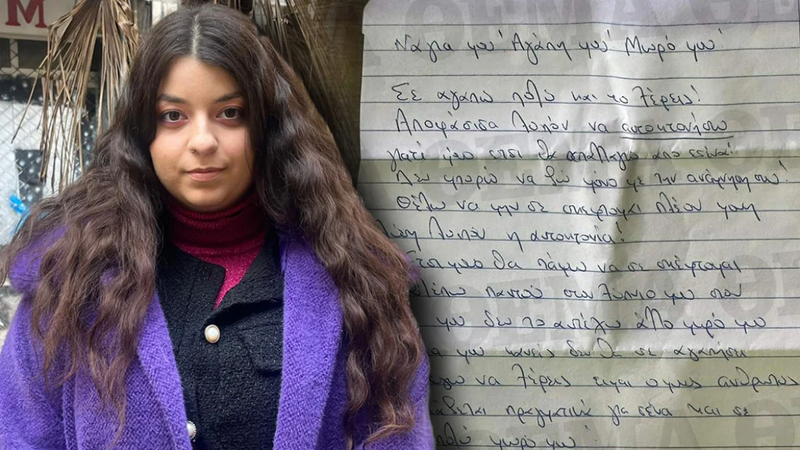 M
Νάγια μου! Αγάπη μου! Μωρό μου!
Σε αγαπώ πολύ και το ξέρεις!
Αποφάσισα λοιπόν να αυτοκτονήσω
γιατί μόνο έτσι θα απαλλαγώ από εσένα!
Δεν μπορώ να ζω μόνο με την ανάμνηση σου!
Θέλω να μην σε σκέφτομαι πλέον μόνη
λύση λοιπόν η αυτοκτονία!
μόνο θα πάψω να σε σκέφτομαι
παντού στον ύπνο μου στον
μου δεν το αντέχω άλλο μωρό μου
μου κανείς δεν θα σε αγαπήσει
να ξέρεις είμαι ο μόνος άνθρωπος
πραγματικά για σένα και σε
πολύ μωρό μου!